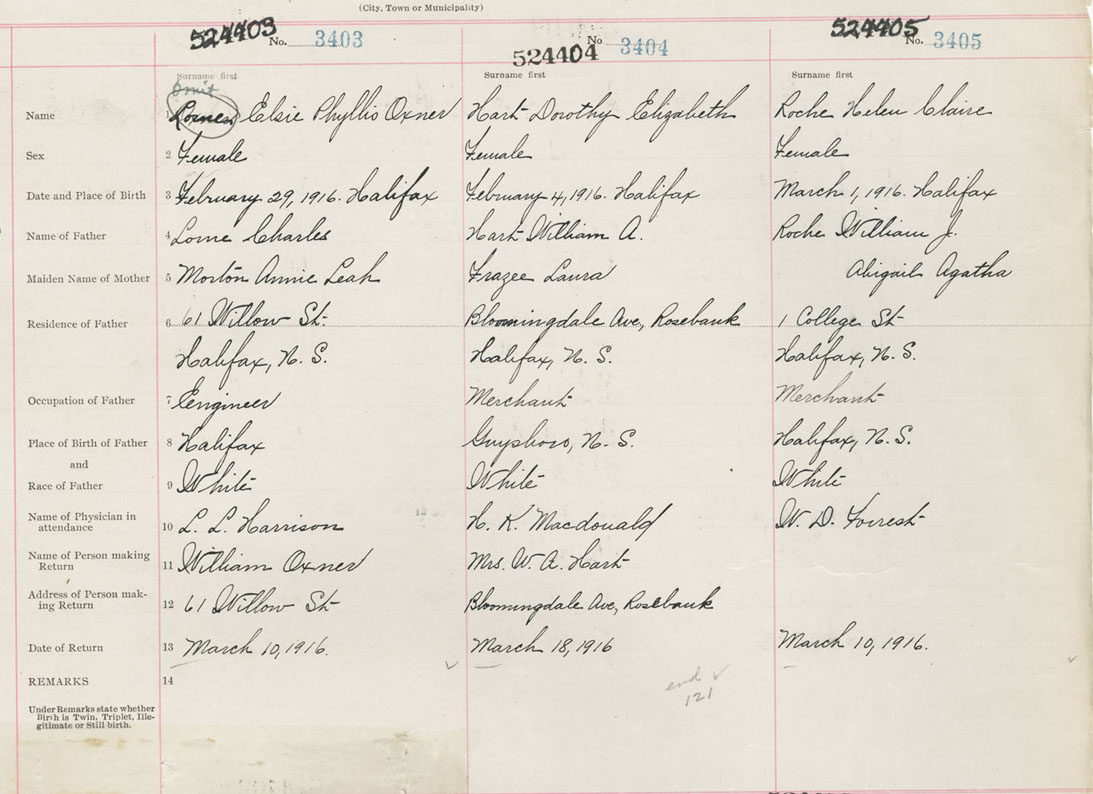 (City, Town or Municipality)
524403 No. 3403
524404 No 3404
524405 No. 3405
Surname first Surname first Surname first
Omit
Name 1 Elsie Phyllis Oxner Hart Dorothy Elizabeth Roche Helen Claire
Sex 2 Female Female Female
Date and Place of Birth 3 February 29, 1916. Halifax February 4, 1916. Halifax March 1, 1916. Halifax
Name of Father 4 Lorne Charles Hart William A. Roche William J.
Maiden Name of Mother 5 Morton Annie Leah Frazee Laura Abigail Agatha
Residence of Father 6 61 Willow St. Bloomingdale Ave., Rosebank 1 College St
Halifax, N. S. Halifax, N. S. Halifax, N. S.
Occupation of Father 7 Engineer Merchant Merchant
Place of Birth of Father 8 Halifax Guysboro, N. S. Halifax, N. S.
and
Race of Father 9 White White White
Name of Physician in
attendance 10 L. L. Harrison H. K. Macdonald W. D. Forrest
Name of Person making
Return 11 William Oxner Mrs. W. A. Hart
Address of Person mak-
ing Return 12 61 Willow St Bloomingdale Ave, Rosebank
Date of Return 13 March 10, 1916. March 18, 1916 March 10, 1916.
REMARKS 14
end
121
Under Remarks state whether
Birth is Twin, Triplet, Ille-
gitimate or Still-birth.